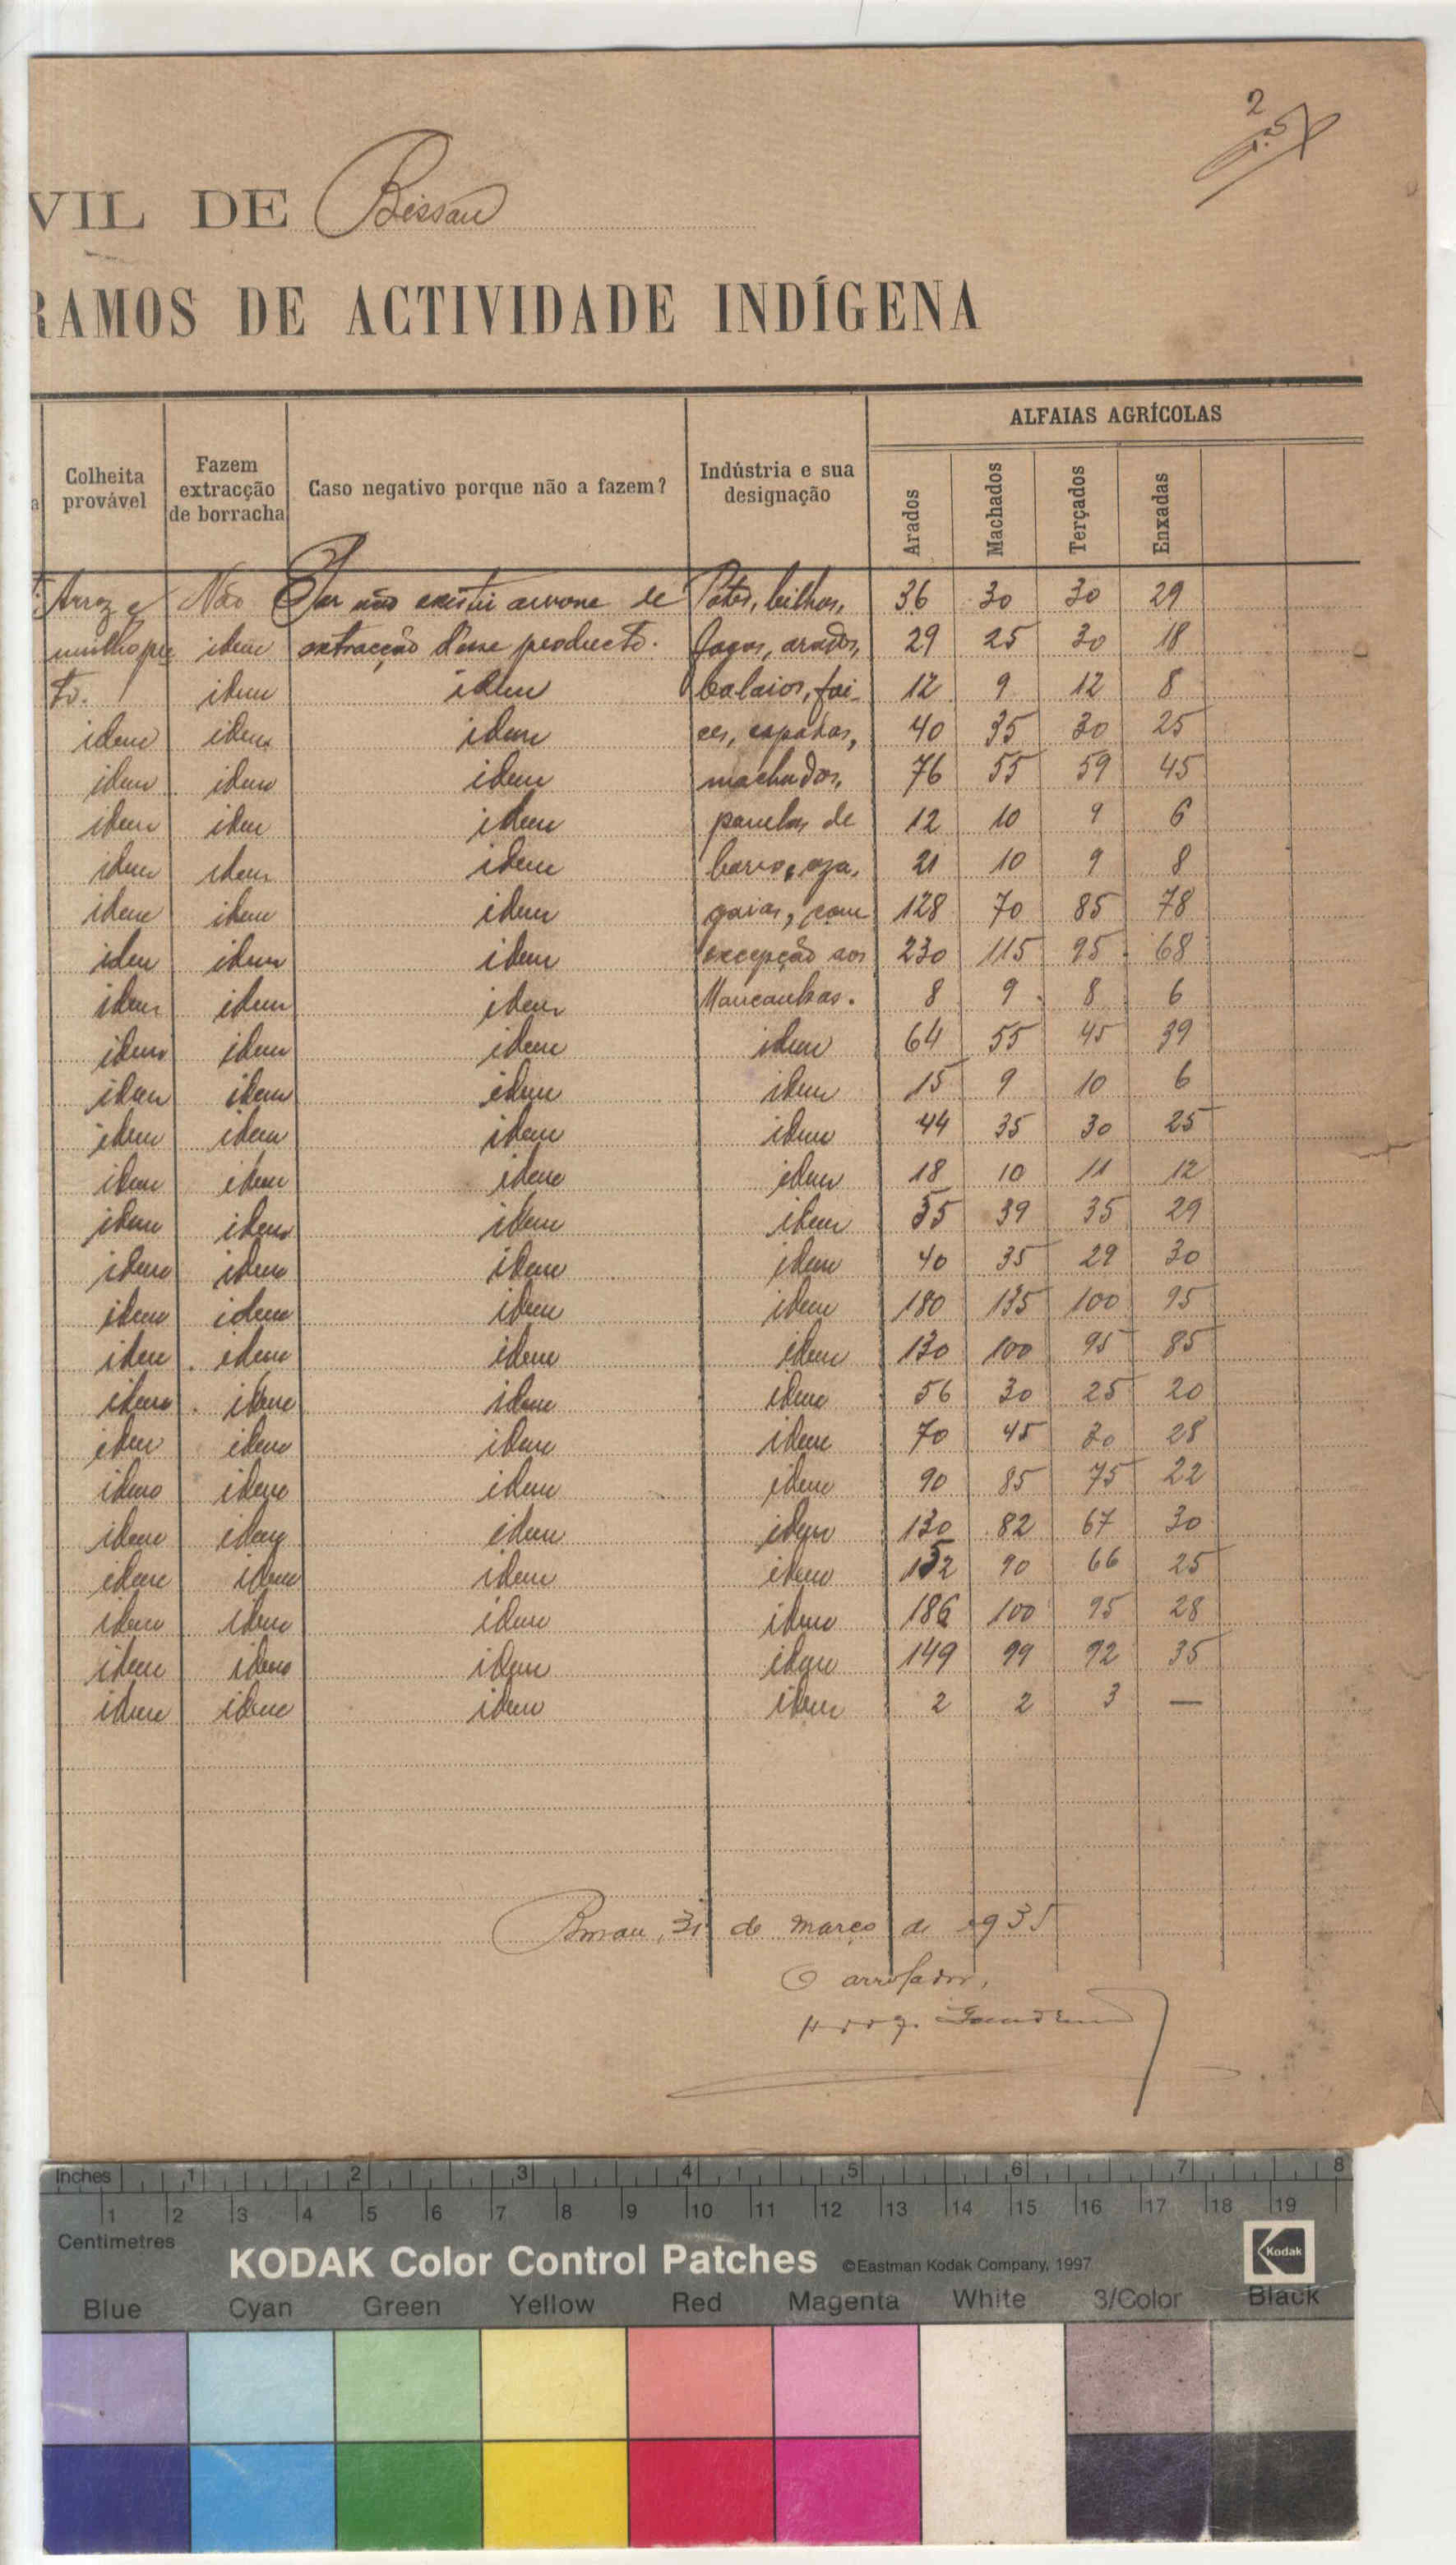 2
VIL DE Bissau
RAMOS DE ACTIVIDADE INDÍGENA
ALFAIAS AGRÍCOLAS
a Colheita provável Fazem extracção de borracha Caso negativo porque não a fazem? Indústria e sua designação Arados Machados Terçados Enxadas
Arroz e Não Por não existir arvore de Potes, bilhas, 36 30 30 29
milho pre idem extracção d'esse producto. fogos, arados, 29 25 30 18
to. idem idem balaios, foi- 12 9 12 8
idem idem idem ces, espadas, 40 35 30 25
idem idem idem machados, 76 55 59 45
idem idem idem panelas de 12 10 9 6
idem idem idem barro, aza, 21 10 9 8
idem idem idem gaias, com 128 70 85 78
idem idem idem excepção aos 230 115 95 68
idem idem idem Mancanhas. 8 9 8 6
idem idem idem idem 64 55 45 39
idem idem idem idem 15 9 10 6
idem idem idem idem 44 35 30 25
idem idem idem idem 18 10 11 12
idem idem idem idem 55 39 35 29
idem idem idem idem 40 35 29 30
idem idem idem idem 180 135 100 95
idem idem idem idem 130 100 95 85
idem idem idem idem 56 30 25 20
idem idem idem idem 70 45 30 28
idem idem idem idem 90 85 75 22
idem idem idem idem 130 82 67 30
idem idem idem idem 152 90 66 25
idem idem idem idem 186 100 95 28
idem idem idem idem 149 99 72 35
idem idem idem idem 2 2 3 —
Bissau, 31 de março de 1935
O arrolador,
Inches 1 2 3 4 5 6 7 8
1 2 3 4 5 6 7 8 9 10 11 12 13 14 15 16 17 18 19
Centimetres
KODAK Color Control Patches ©Eastman Kodak Company, 1997 Kodak
Blue Cyan Green Yellow Red Magenta White 3/Color Black